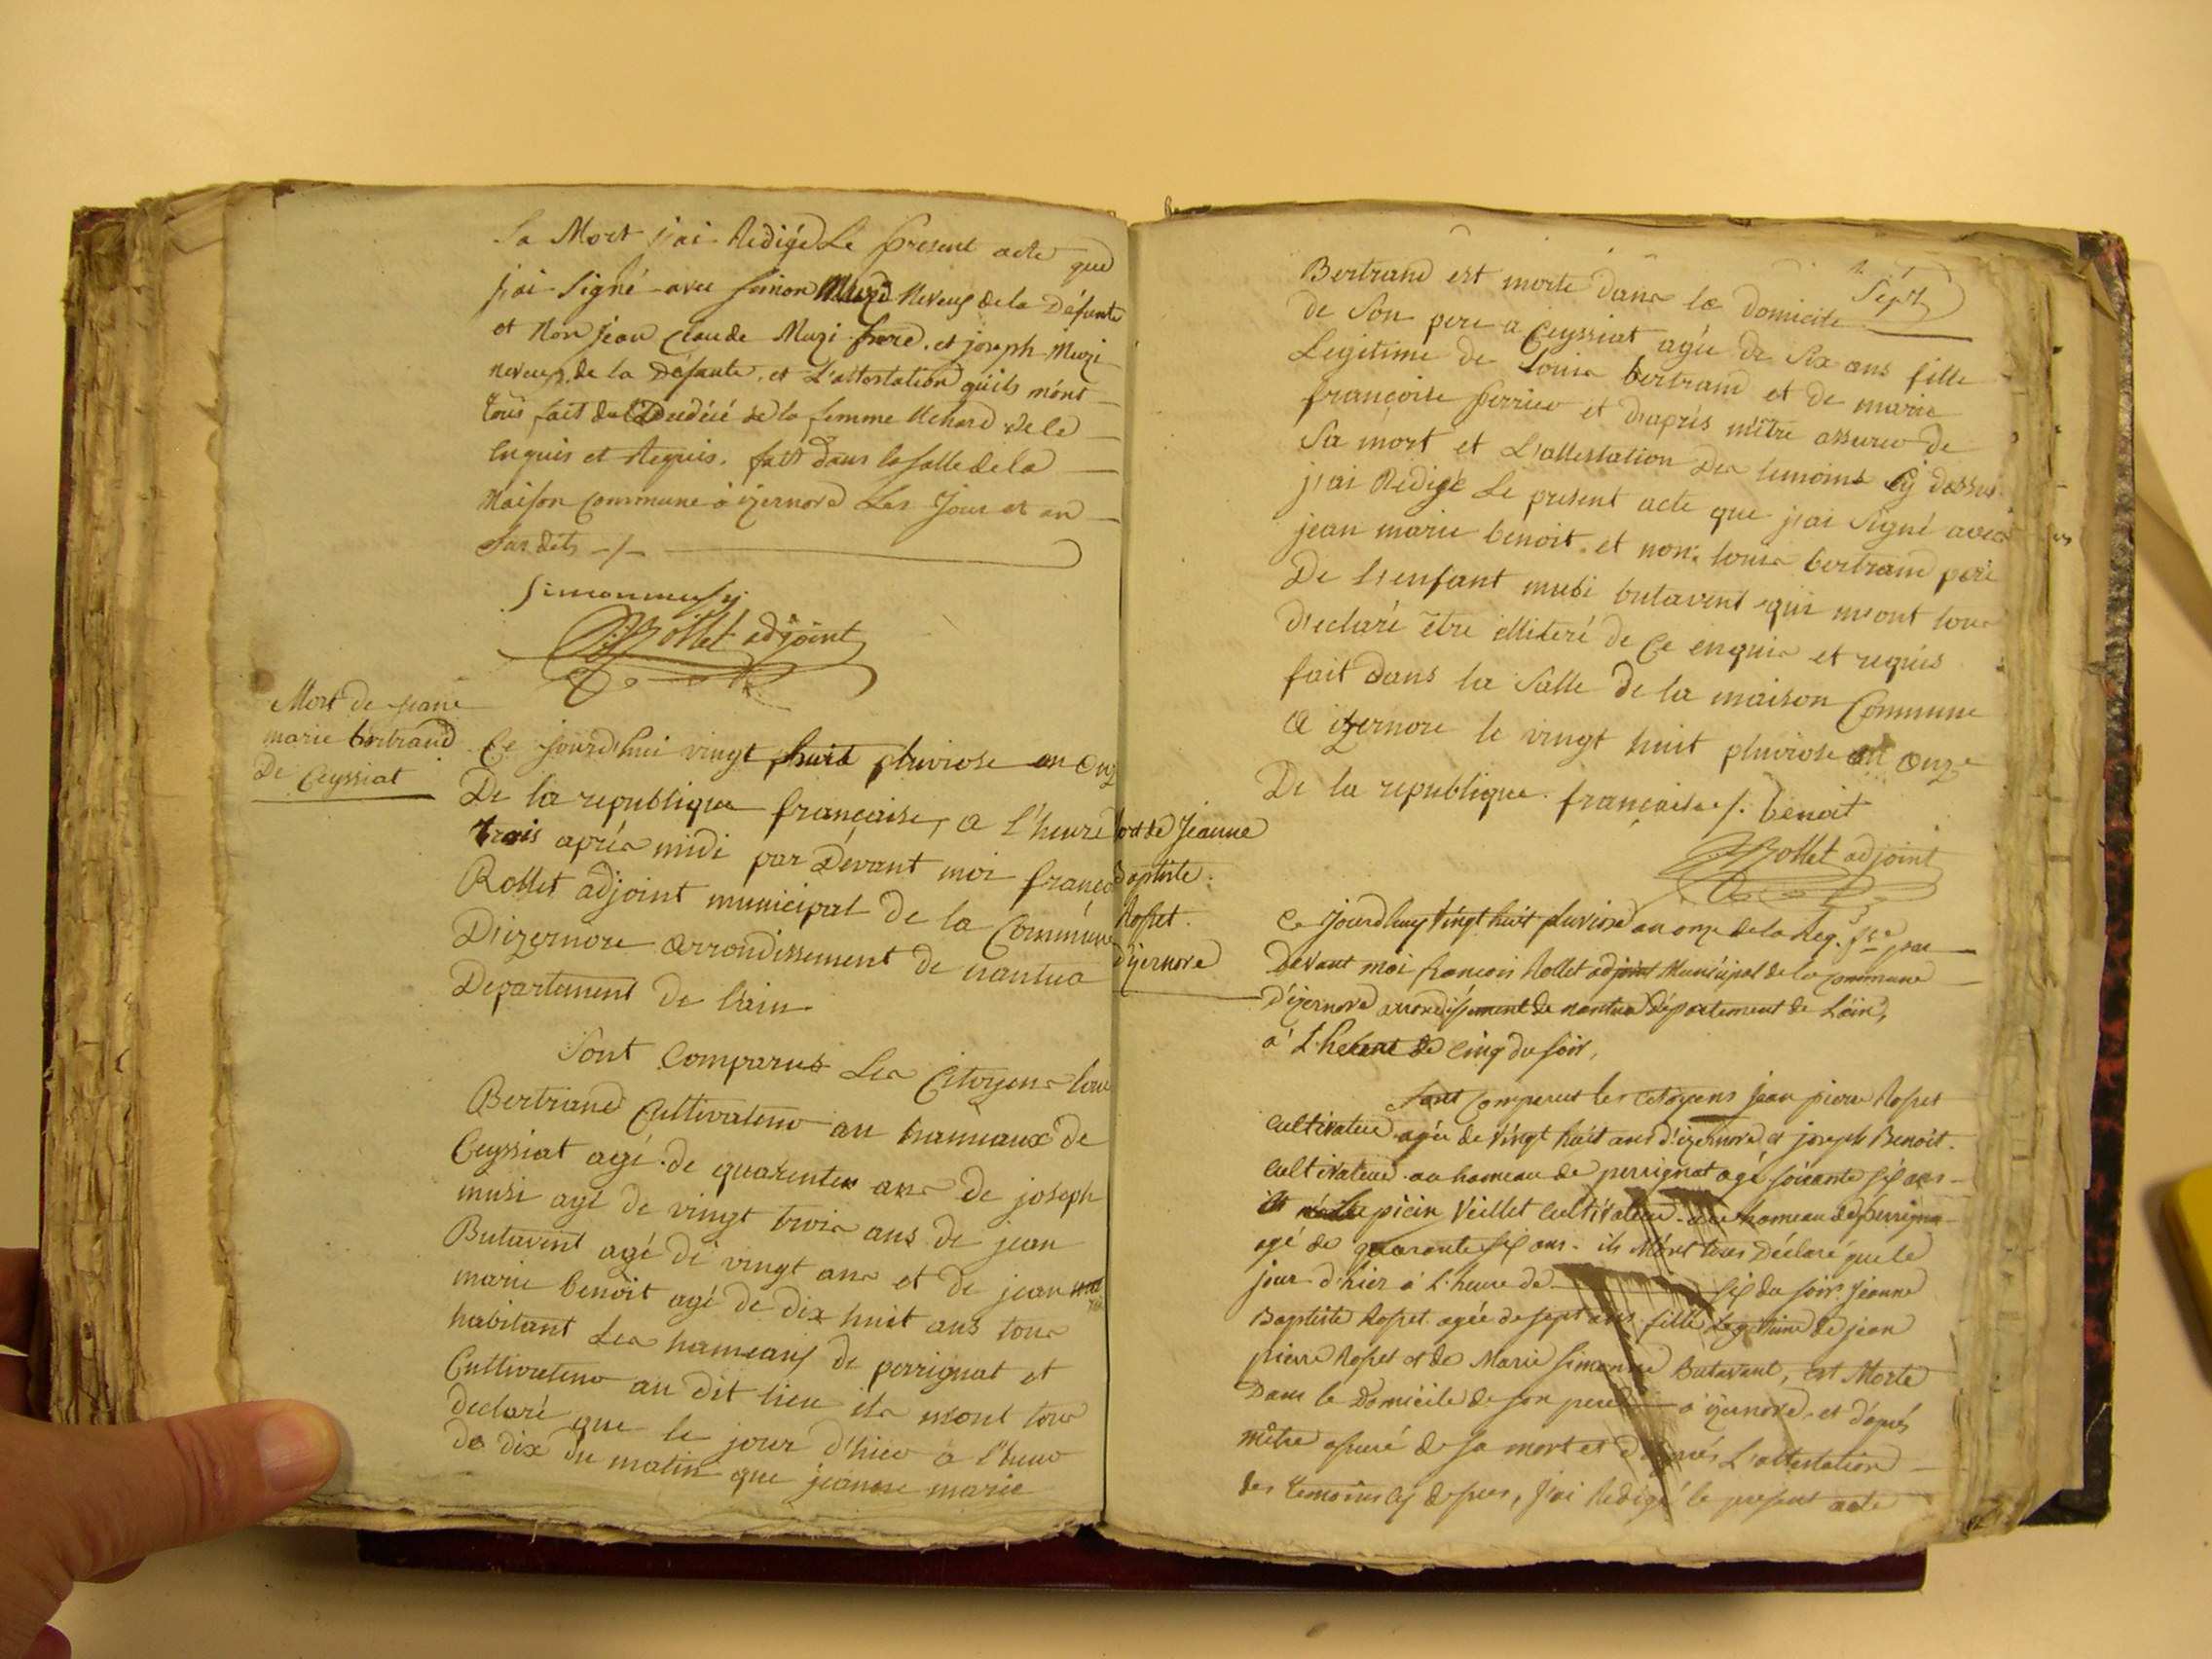 Sa Mort j'ai Redigé Le present acte que
j'ai Signé avec Simon Muzi Neveux de la Défunte
et Non jean Claude Muzi frere, et joseph Muzi
neveux de la Défunte, et L'attestation qu'ils m'ont
tous fait de la femme de le
Enquis et Requis. fait dans la salle de la
Maison Commune à izernore Les Jour et an
Sus dits -/-
Simon musy
Rollet adjoint
Mort de jeane
marie bertrand
De Ceyssiat
Ce jourd'hui vingt huit pluviose an onz
De la republique française, a l'heure
trois après midi par Devant moi franço
Rollet adjoint municipal de la Commune
D'izernore arrondissement de nantua
Departement de l'ain
Sont Comparus Les Citoyens loui
Bertrand Cultivateur au hameaux de
Ceyssiat agé de quarente ans de joseph
musi agé de vingt trois ans de jean
Butavent agé de vingt ans et de jean
marie benoit agé de dix huit ans tous
habitant Les hameaux de perrignat et
Cultivateur au dit lieu ils mont tous
declaré que le jour d'hier a l'heure
de dix du matin que jeanne marie
Sept
Bertrand est morte dans le domicile
de Son pere a Ceyssiat agée de Six ans fille
Legitime de Louis bertrand et de marie
françoise perrier et d'aprés m'être assurer de
Sa mort et L'attestation Des temoins Cy dessus
j'ai Redigé Le present acte que j'ai Signé avec
jean marie benoit et non louis bertrand pere
De L'enfant musi butavent qui m'ont tous
Declaré être illiteré de Ce enquis et requis
fait dans la Salle de la maison Commune
a izernore le vingt huit pluviose an onze
De la republique française /. benoit
Rollet adjoint
ort de Jeanne
Baptiste
Rosset
D'izernore
Ce jourdhuy Vingt huit pluviose an onze de la Rep. fse par
Devant moi françois Rollet adjoint Municipal de la commune
D'izernore arrondissement de nantua département de L'ain,
à L'heure de Cinq du soir,
Sont comparut les Citoyens jean pierre Rosset
Cultivateur agée de Vingt huit ans d'izernore, et joseph Benoit
Cultivateur au hameau de perrignat agé soixante six ans
et Veillet Cultivateur au hameau de perrigna
agé de quarante six ans. ils M'ont tous Déclaré que le
jour d'hier à L'heure de six du soir Jeanne
Baptiste Rosset agée de sept ans fille Legitime de jean
pierre Rosset et de Marie simonne Butavant, est Morte
Dans le Domicile de son pere à izernore, et d'aprés
mêtre assuré de sa mort et d'aprés L'attestation
des temoins cy dessus, j'ai Redigé le present acte